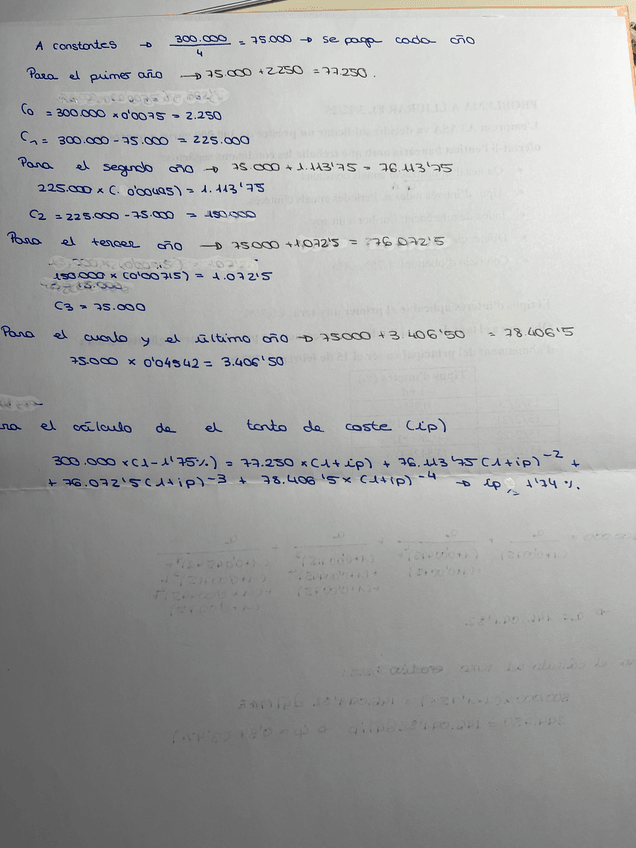 A constantes → 300.000 / 4 = 75.000 → se paga cada año
Para el primer año → 75.000 + 2.250 = 77.250.
C0 = 300.000 × 0'0075 = 2.250
C1 = 300.000 - 75.000 = 225.000
Para el segundo año → 75.000 + 1.113'75 = 76.113'75
225.000 × (. 0'00495) = 1.113'75
C2 = 225.000 - 75.000 = 150.000
Para el tercer año → 75000 + 1.072'5 = 76.072'5
150.000 × (0'00715) = 1.072'5
C3 = 75.000
Para el cuarto y el último año → 75000 + 3.406'50 = 78.406'5
75.000 × 0'04542 = 3.406'50
ra el cálculo de el tanto de coste (ip)
300.000 × (1 - 1'75%) = 77.250 × (1 + ip) + 76.113'75 (1 + ip)^-2 +
+ 76.072'5 (1 + ip)^-3 + 78.406'5 × (1 + ip)^-4 → ip 1'74 %.